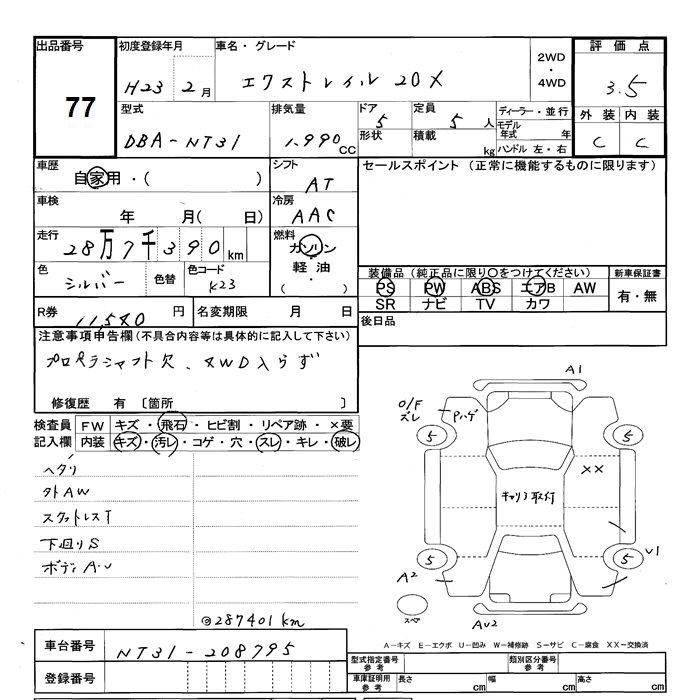 出品番号 初度登録年月 車名・グレード 2WD・4WD 評価点
77 H23 2月 エクストレイル 20X 3.5
型式 排気量 ドア 定員 ディーラー・並行 外装 内装
DBA-NT31 1,990CC 5 5人 モデル年式 年 C C
形状 積載 kg ハンドル 左・右
車歴 シフト セールスポイント (正常に機能するものに限ります)
自家用・( ) AT
車検 冷房
年 月( 日) AAC
走行 燃料
28万7千390km ガソリン・軽油・( )
色 色替 色コード 装備品(純正品に限り○をつけてください) 新車保証書
シルバー K23 PS PW ABS エアB AW 有・無
SR ナビ TV カワ
R券 11,540円 名変期限 月 日 後日品
注意事項申告欄(不具合内容等は具体的に記入して下さい)
プロペラシャフト欠、4WD入らず
修復歴 有〔箇所 〕
検査員記入欄 FW キズ・飛石・ヒビ割・リペア跡・×要
内装 キズ・汚レ・コゲ・穴・スレ・キレ・破レ
ヘタリ
外AW
スタットレスT
下廻りS
ボディA・U
@287401km
A1
O/Fズレ Pハゲ
5 5
XX
キャリア取付
5 5 U1
A2
スペア AU2
A-キズ E-エクボ U-凹み W-補修跡 S-サビ C-腐食 XX-交換済
車台番号 NT31-208795
型式指定番号 参考 類別区分番号 参考
登録番号 車庫証明用 参考 長さ cm 幅 cm 高さ cm